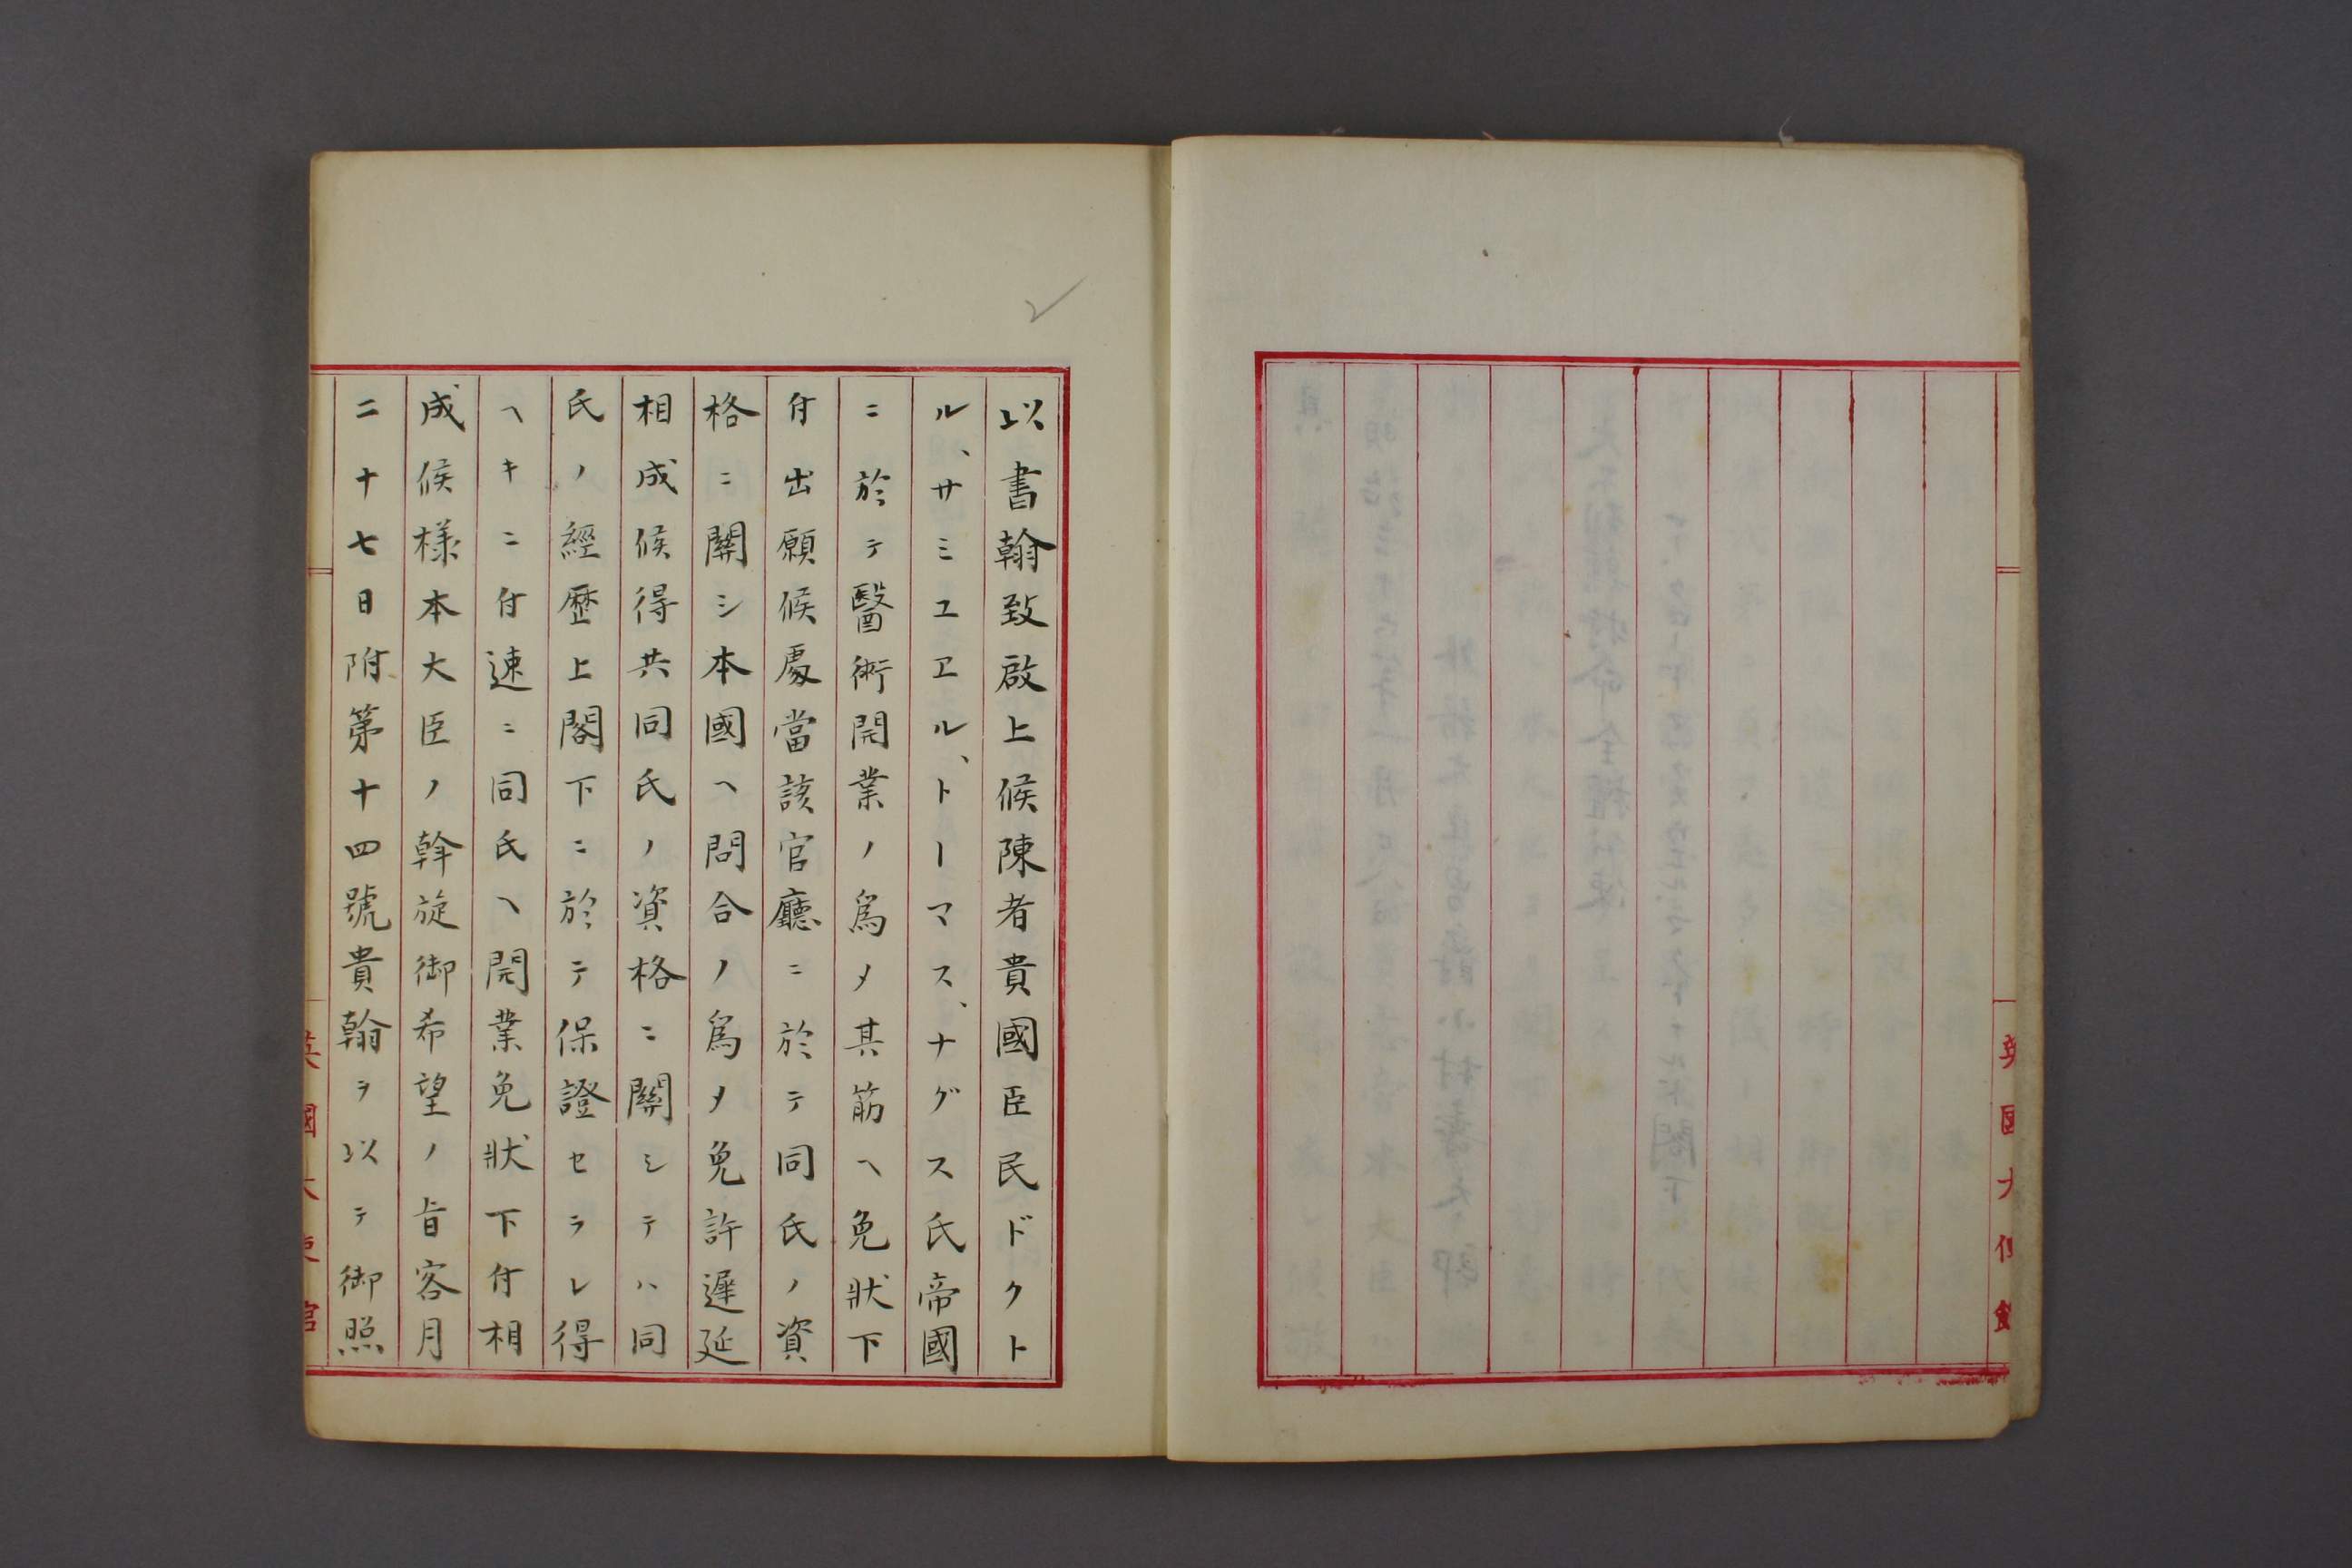 英國大使館
以書翰致啟上候陳者貴國臣民ドクト
ル、サミユエル、トーマス、ナグス氏帝國
ニ於テ醫術開業ノ爲メ其筋ヘ免狀下
付出願候處當該官廳ニ於テ同氏ノ資
格ニ關シ本國ヘ問合ノ爲メ免許遲延
相成候得共同氏ノ資格ニ關シテハ同
氏ノ經歷上閣下ニ於テ保證セラレ得
ヘキニ付速ニ同氏ヘ開業免狀下付相
成候樣本大臣ノ斡旋御希望ノ旨客月
二十七日附第十四號貴翰ヲ以テ御照
英國大使館